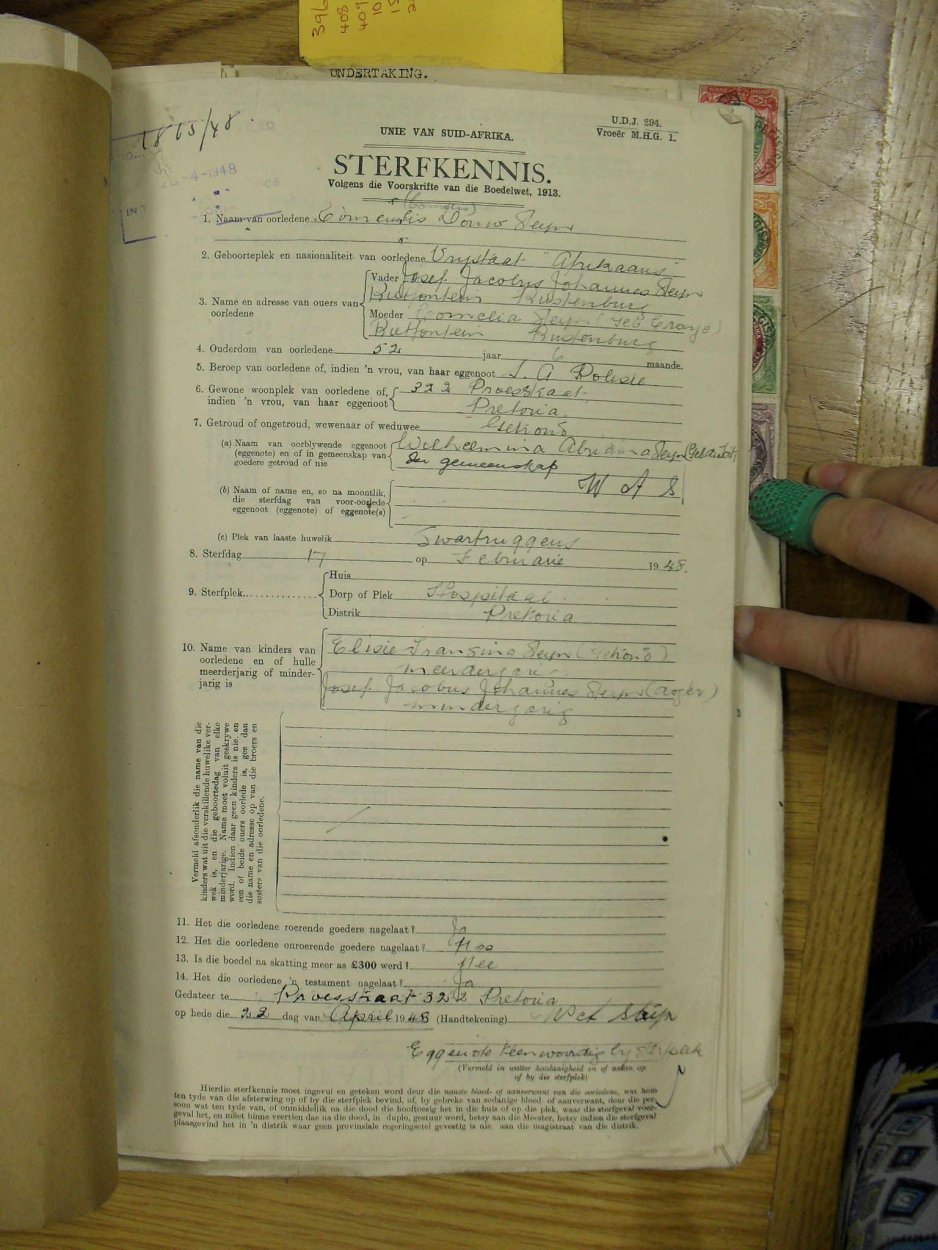 396
408
409
10
UNDERTAKING.
1803/48
-4-1948
IN T
UNIE VAN SUID-AFRIKA.
U.D.J. 294.
Vroeër M.H.G. 1.
STERFKENNIS.
Volgens die Voorskrifte van die Boedelwet, 1913.
(Cornelis)
1. Naam van oorledene Cornelis Douw Steyn
2. Geboorteplek en nasionaliteit van oorledene Vrystaat "Afrikaans"
3. Name en adresse van ouers van oorledene
Vader Josef Jacobus Johannes Steyn
Rietfontein Rustenburg
Moeder Cornelia Steyn (Geb Cronje)
Rietfontein Rustenburg
4. Ouderdom van oorledene 52 jaar 6 maande.
5. Beroep van oorledene of, indien 'n vrou, van haar eggenoot S. A Polisie
6. Gewone woonplek van oorledene of, indien 'n vrou, van haar eggenoot
322 Proesstraat
Pretoria
7. Getroud of ongetroud, wewenaar of weduwee Getroud
(a) Naam van oorblywende eggenoot (eggenote) en of in gemeenskap van goedere getroud of nie
Wilhelmina Abriana Steyn
In gemeenskap
W A S
(b) Naam of name en, so na moontlik, die sterfdag van voor-oorlede eggenoot (eggenote) of eggenote(s)
(c) Plek van laaste huwelik Swartruggens
8. Sterfdag 17 op Februarie 1948.
9. Sterfplek
Huis
Dorp of Plek Hospitaal
Distrik Pretoria
10. Name van kinders van oorledene en of hulle meerderjarig of minderjarig is
Elisie Fransina Steyn (Getroud)
meerderjarig
Josef Jacobus Johannes Steyn
minderjarig
Vermeld afsonderlik die name van die
kinders wat uit die verskillende huwelike ver-
wek is, en die geboortedag van elke
minderjarige. Name moet voluit geskrywe
word. Indien daar geen kinders is nie, en
een of beide ouers oorlede is, gee dan
die name en adresse op van die broers en
susters van die oorledene.
11. Het die oorledene roerende goedere nagelaat? Ja
12. Het die oorledene onroerende goedere nagelaat? Nee
13. Is die boedel na skatting meer as £300 werd? Nee
14. Het die oorledene 'n testament nagelaat? Ja
Gedateer te Proesstraat 322 Pretoria
op hede die 22 dag van April 1948 (Handtekening) Steyn
Eggenote teenwoordig by sterfplek
(Vermeld in watter hoedanigheid en of aldan op
of by die sterfplek)
Hierdie sterfkennis moet ingevul en geteken word deur die naaste bloed- of aanverwant van die oorledene, wat hom
ten tyde van die afsterwing op of by die sterfplek bevind, of, by gebreke van sodanige bloed- of aanverwant, deur die per-
soon wat ten tyde van, of onmiddellik na die dood die hooftoesig het in die huis of op die plek, waar die sterfgeval voor-
geval het, en moet binne veertien dae na die dood, in duplo, gestuur word, hetsy aan die Meester, hetsy indien die sterfgeval
plaasgevind het in 'n distrik waar geen provinsiale regeringsetel gevestig is nie, aan die magistraat van die distrik.